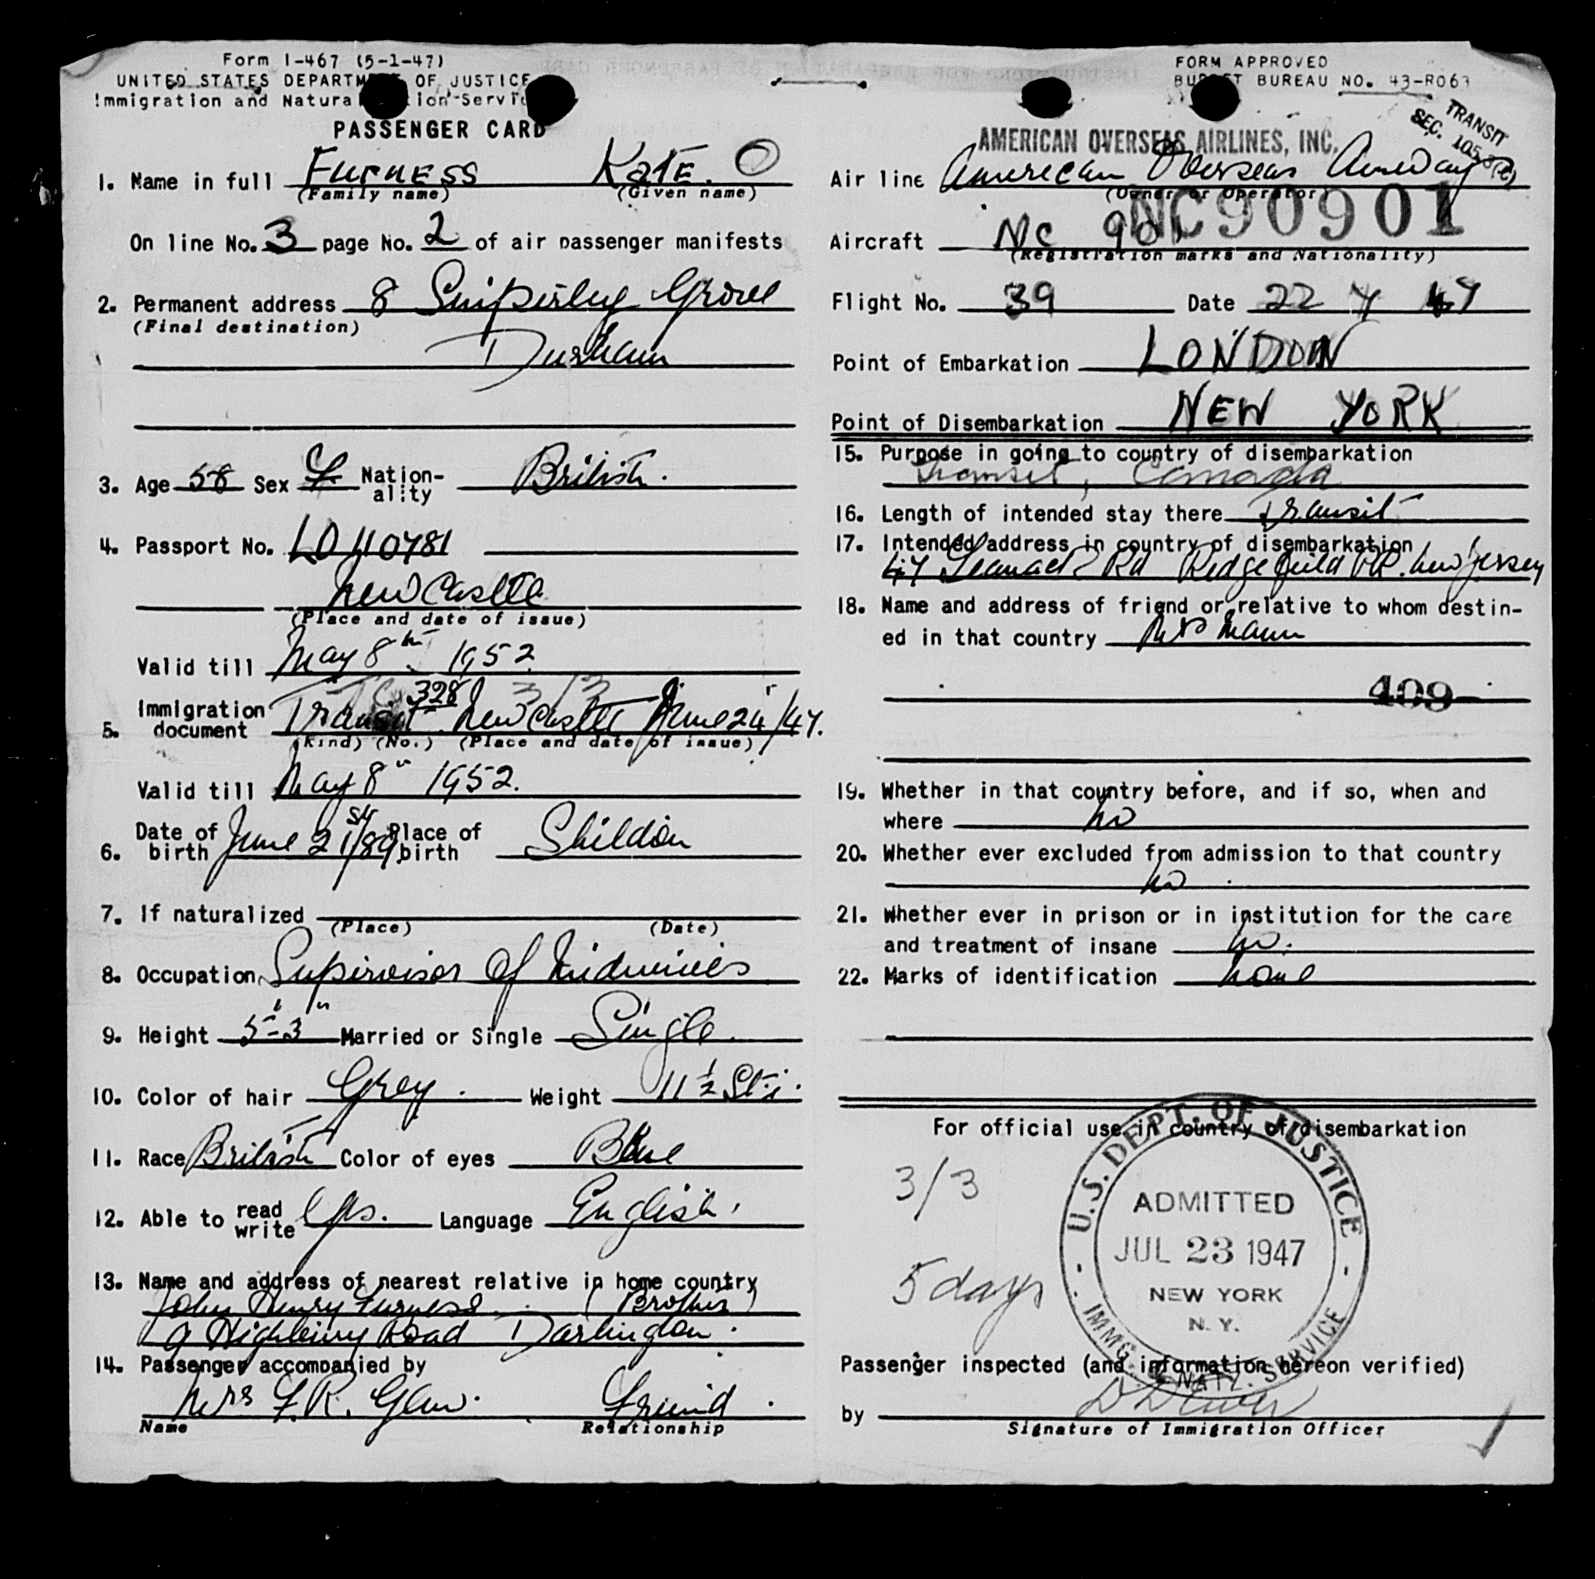 Form I-467 (5-1-47)
UNITED STATES DEPARTM OF JUSTICE
Immigration and Natura ion Servic
PASSENGER CARD
1. Name in full FURNESS KATE.
(Family name) (Given name)
On line No. 3 page No. 2 of air passenger manifests
2. Permanent address 8 Grove
(Final destination)
Durham
3. Age 58 Sex F Nation-ality British.
4. Passport No. LO 110781
New Castle
(Place and date of issue)
Valid till May 8th 1952
5. Immigration document Transit 328 New Castle June 24/47.
(Kind) (No.) (Place and date of issue)
Valid till May 8" 1952.
6. Date of birth June 21st/89 Place of birth Shildon
7. If naturalized
(Place) (Date)
8. Occupation Supervisor of Midwives
9. Height 5'-3" Married or Single Single
10. Color of hair Grey. Weight 11½ St.
11. Race British Color of eyes Blue
12. Able to read write yes. Language English.
13. Name and address of nearest relative in home country
John Henry Furness (Brother)
9 Road Darlington.
14. Passenger accompanied by
Mrs F.R. Friend.
Name Relationship
FORM APPROVED
BU T BUREAU NO. 43-R063
TRANSIT
SEC.
AMERICAN OVERSEAS AIRLINES, INC.
Air line American Overseas
(Owner or Operator)
NC90901
Aircraft NC 901
(Registration marks and Nationality)
Flight No. 39 Date 22 7 47
Point of Embarkation LONDON
Point of Disembarkation NEW YORK
15. Purpose in going to country of disembarkation
Transit, Canada
16. Length of intended stay there Transit
17. Intended address in country of disembarkation
47 Rd Ridgefield PK. New Jersey
18. Name and address of friend or relative to whom destin-
ed in that country Mrs Mann
409
19. Whether in that country before, and if so, when and
where no
20. Whether ever excluded from admission to that country
no.
21. Whether ever in prison or in institution for the care
and treatment of insane no.
22. Marks of identification none
For official use in country of disembarkation
3/3
5 days
U.S. DEPT. OF JUSTICE
ADMITTED
JUL 23 1947
NEW YORK
N. Y.
IMMG. & NATZ. SERVICE
Passenger inspected (and information hereon verified)
by
Signature of Immigration Officer